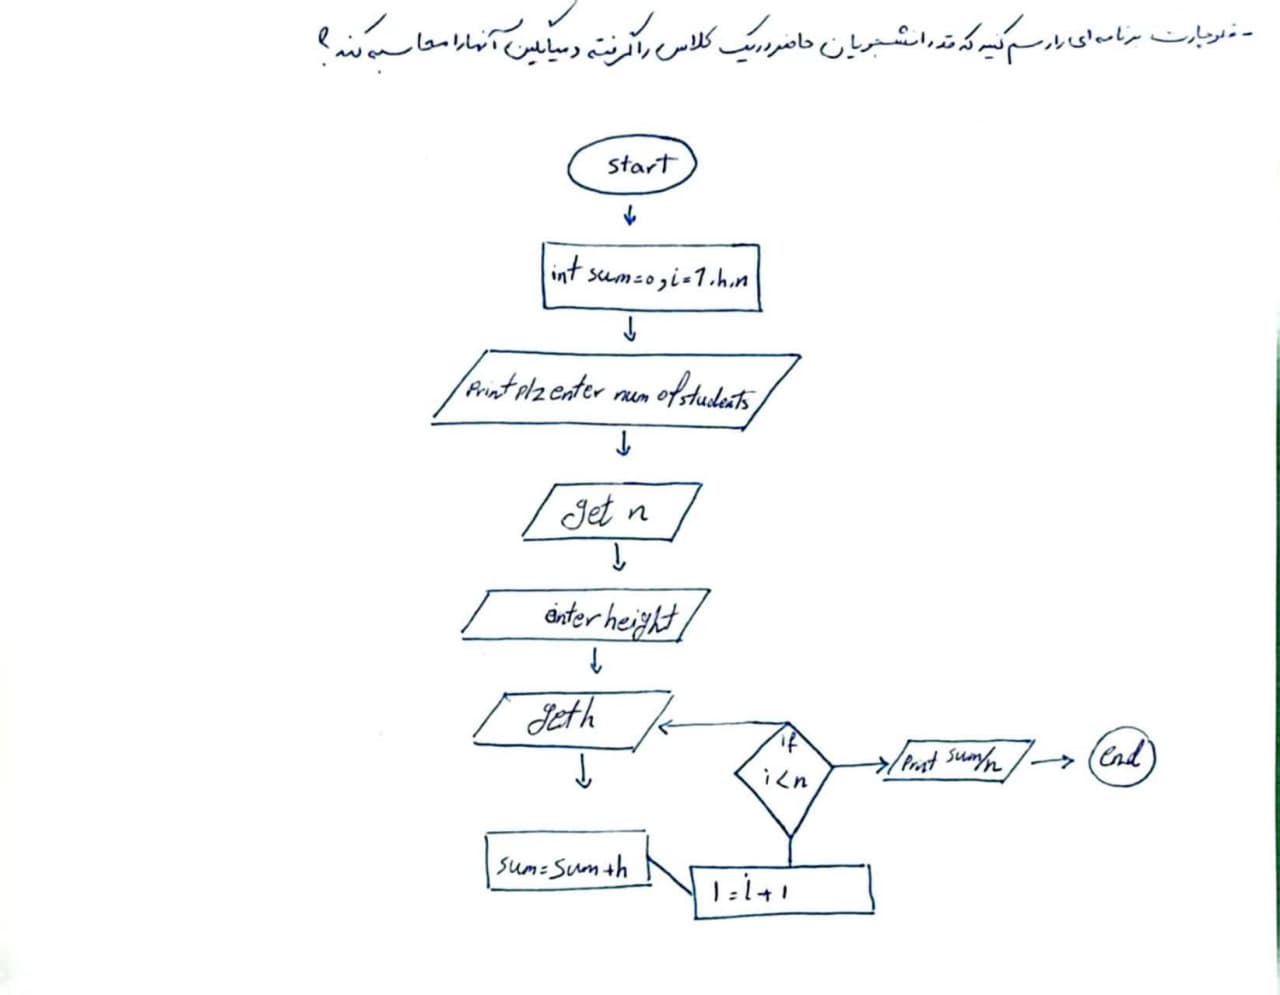 - فلوچارت برنامه ای را رسم کنید که قد دانشجویان حاضر در یک کلاس را گرفته و میانگین آنها را محاسبه کند؟
start
int sum=0, i=1, h, n
Print plz enter num of students
get n
enter height
get h
if
i<n
Print sum/n
end
sum=sum+h
i=i+1